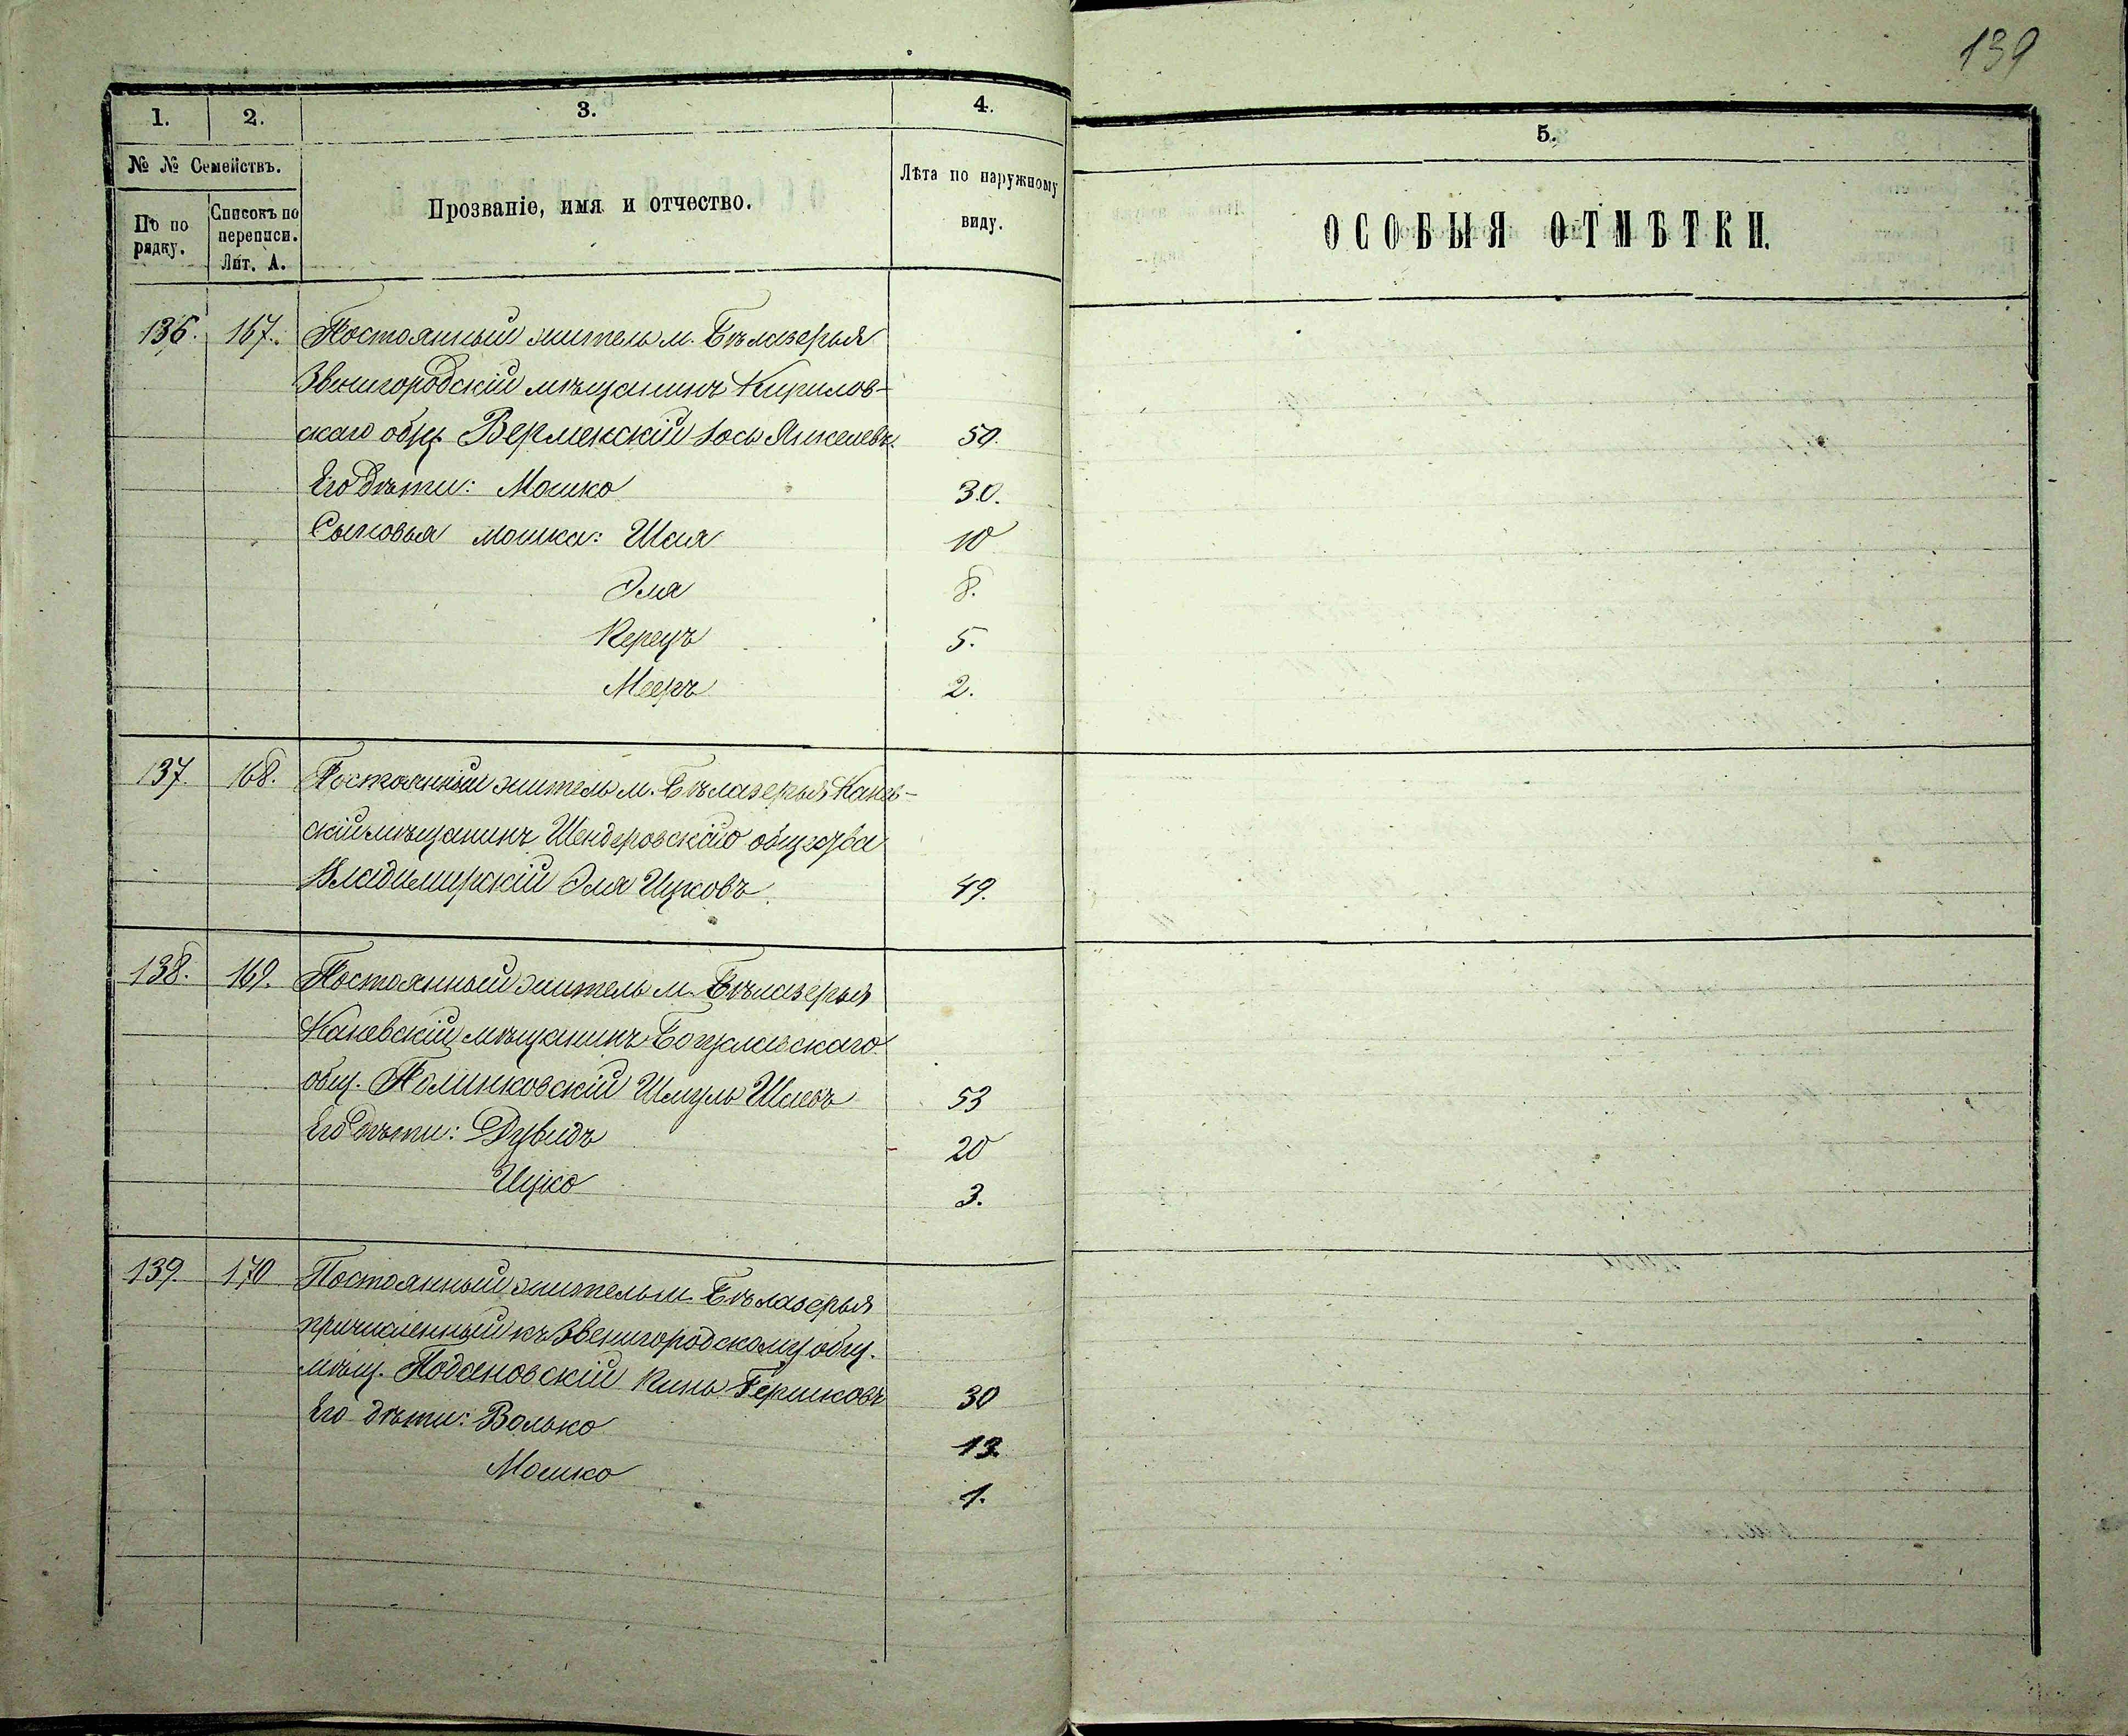 139
1. 2. 3. 4. 5.
№ № Семействъ.
По по рядку.
Списокъ по переписи. Лит. А.
Прозваніе, имя и отчество.
Лѣта по наружному виду.
ОСОБЫЯ ОТМѢТКИ.
136. 167. Постоянный житель м. Бѣлазерья
Звенигородскій мѣщанинъ Кирилов-
скаго общ. Верменскій Іось Янкелевъ. 50.
Его дѣти: Мошко 30.
Сыновья мошка: Шая 10
Эля 8.
Перецъ 5.
Мееръ 2.
137. 168. Постоянный житель м. Бѣлазерья Канев-
скій мѣщанинъ Шендеровскаго общества
Владимирскій Эля Ицковъ. 49.
138. 169. Постоянный житель м. Бѣлазерья
Каневскій мѣщанинъ Богуславскаго
общ. Полинковскій Шмуль Шаевъ 53
Его дѣти: Дувидъ 20
Ицко 3.
139. 170 Постоянный житель м. Бѣлазерья
причисленный къ Звенигородскому общ.
мѣщ. Подановскій Пинь Гершковъ 30
Его дѣти: Волько 13.
Мошко 1.